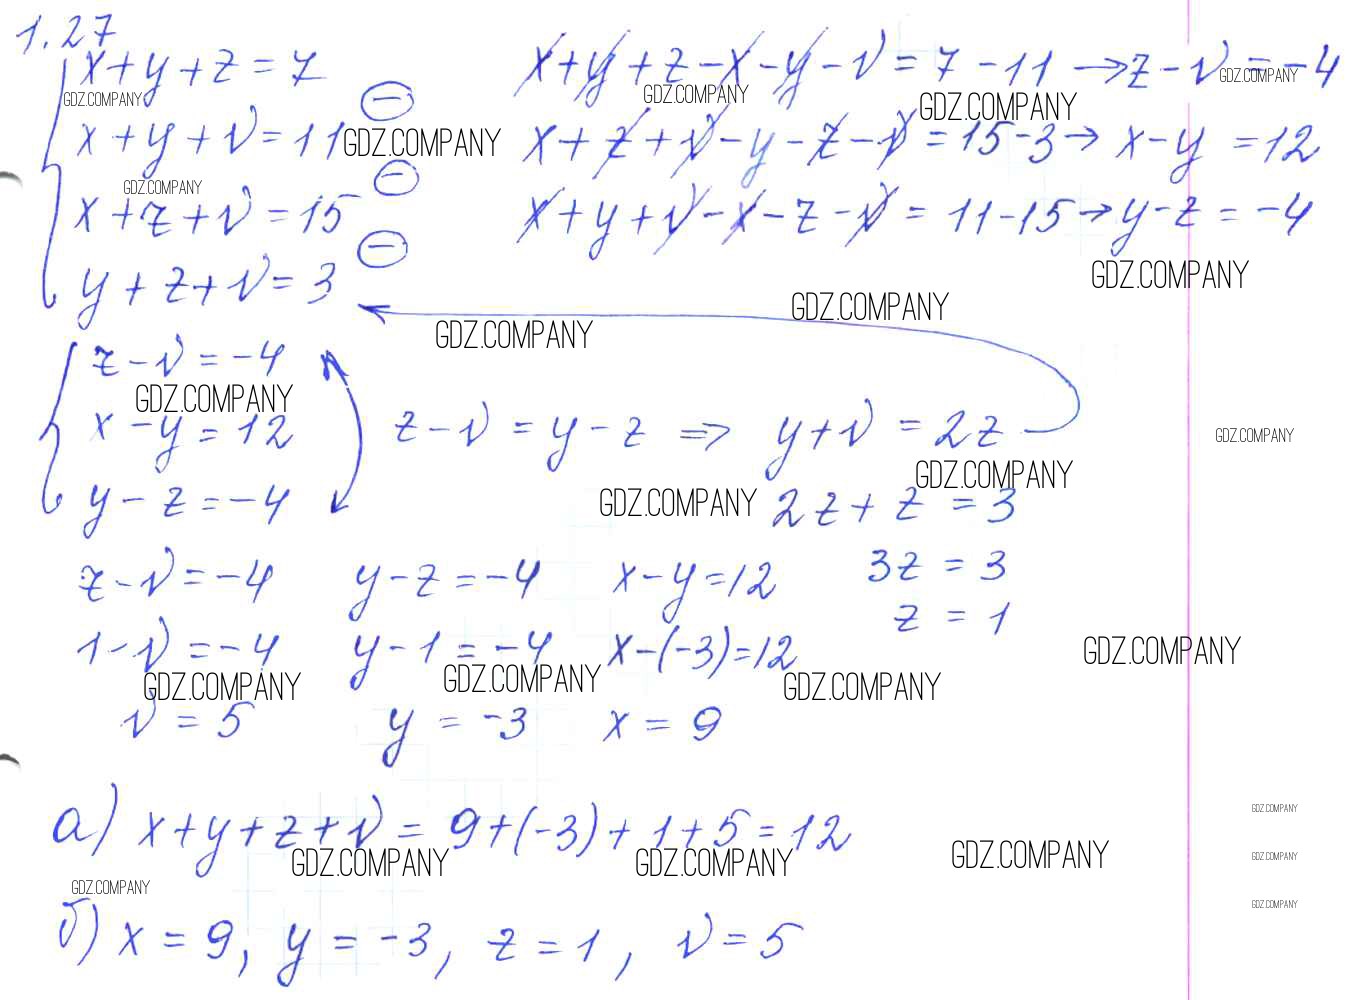 1.27
x+y+z=7   x+y+z-x-y-v=7-11→z-v=-4
GDZ.COMPANY   GDZ.COMPANY   GDZ.COMPANY   GDZ.COMPANY
x+y+v=11   GDZ.COMPANY   x+z+v-y-z-v=15-3→ x-y=12
GDZ.COMPANY
x+z+v=15   x+y+v-x-z-v=11-15→y-z=-4
y+z+v=3   GDZ.COMPANY
GDZ.COMPANY   GDZ.COMPANY
z-v=-4
GDZ.COMPANY
x-y=12   z-v=y-z ⇒ y+v=2z   GDZ.COMPANY
GDZ.COMPANY
y-z=-4   GDZ.COMPANY   2z+z=3
z-v=-4   y-z=-4   x-y=12   3z=3
z=1
1-v=-4   y-1=-4   x-(-3)=12   GDZ.COMPANY
GDZ.COMPANY   GDZ.COMPANY   GDZ.COMPANY
v=5   y=-3   x=9
GDZ.COMPANY
а) x+y+z+v=9+(-3)+1+5=12
GDZ.COMPANY   GDZ.COMPANY   GDZ.COMPANY   GDZ.COMPANY
GDZ.COMPANY   GDZ.COMPANY
б) x=9, y=-3, z=1, v=5